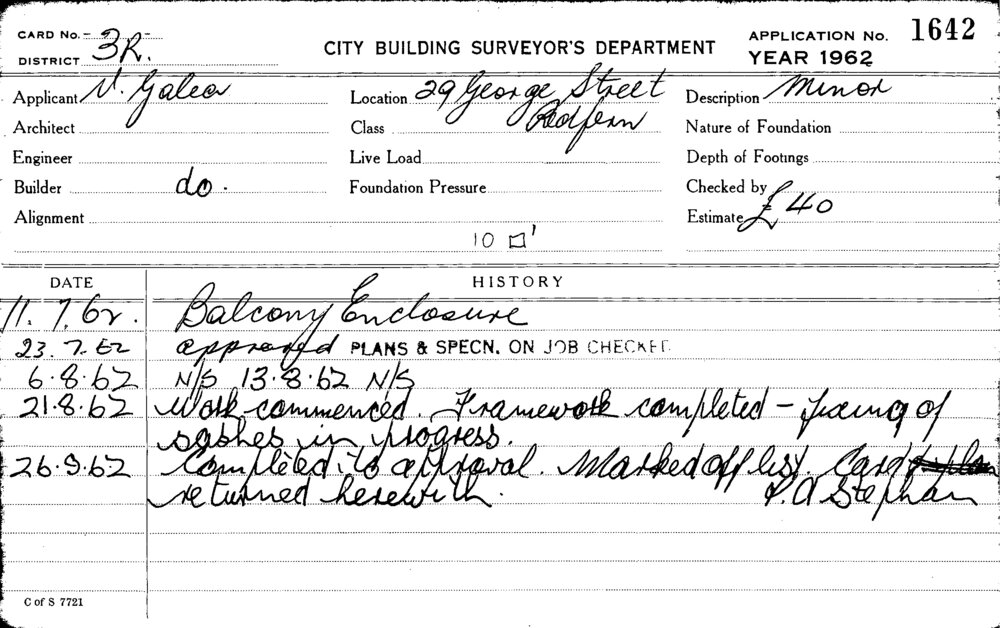 CARD No. - 3R. -
DISTRICT
CITY BUILDING SURVEYOR'S DEPARTMENT
APPLICATION No. 1642
YEAR 1962
Applicant V. Galea
Location 29 George Street
Description Minor
Architect
Class Redfern
Nature of Foundation
Engineer
Live Load
Depth of Footings
Builder do.
Foundation Pressure
Checked by
Alignment
Estimate £40
10 □'
DATE
HISTORY
11.7.62. Balcony Enclosure
23.7.62 approved PLANS & SPECN. ON JOB CHECKED
6.8.62 N/S 13.8.62 N/S
21.8.62 Work commenced. Framework completed - fixing of
sashes in progress.
26.9.62 Completed to approval. Marked off list. Card
returned herewith. P.A Stephan
C of S 7721